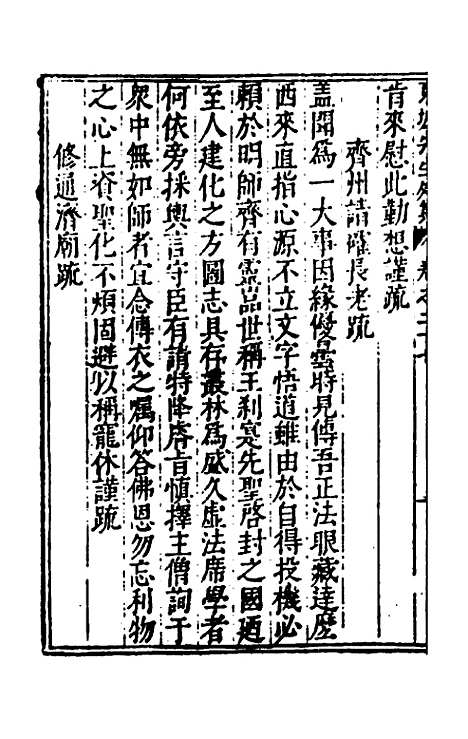 肯來慰此勤想謹疏
齊州請確長老疏
蓋聞為一大事因緣優曇時見傳吾正法眼藏達麼
西來直指心源不立文字悟道雖由於自得投機必
賴於明師齊有靈嵒世稱王刹寔先聖啓封之國廼
至人建化之方圖志具存叢林為盛久虛法席學者
何依旁採輿言守臣有請特降睿旨慎擇主僧詢于
衆中無如師者宜念傳衣之囑仰答佛恩勿忘利物
之心上資聖化不煩固避以稱寵休謹疏
修通濟廟疏